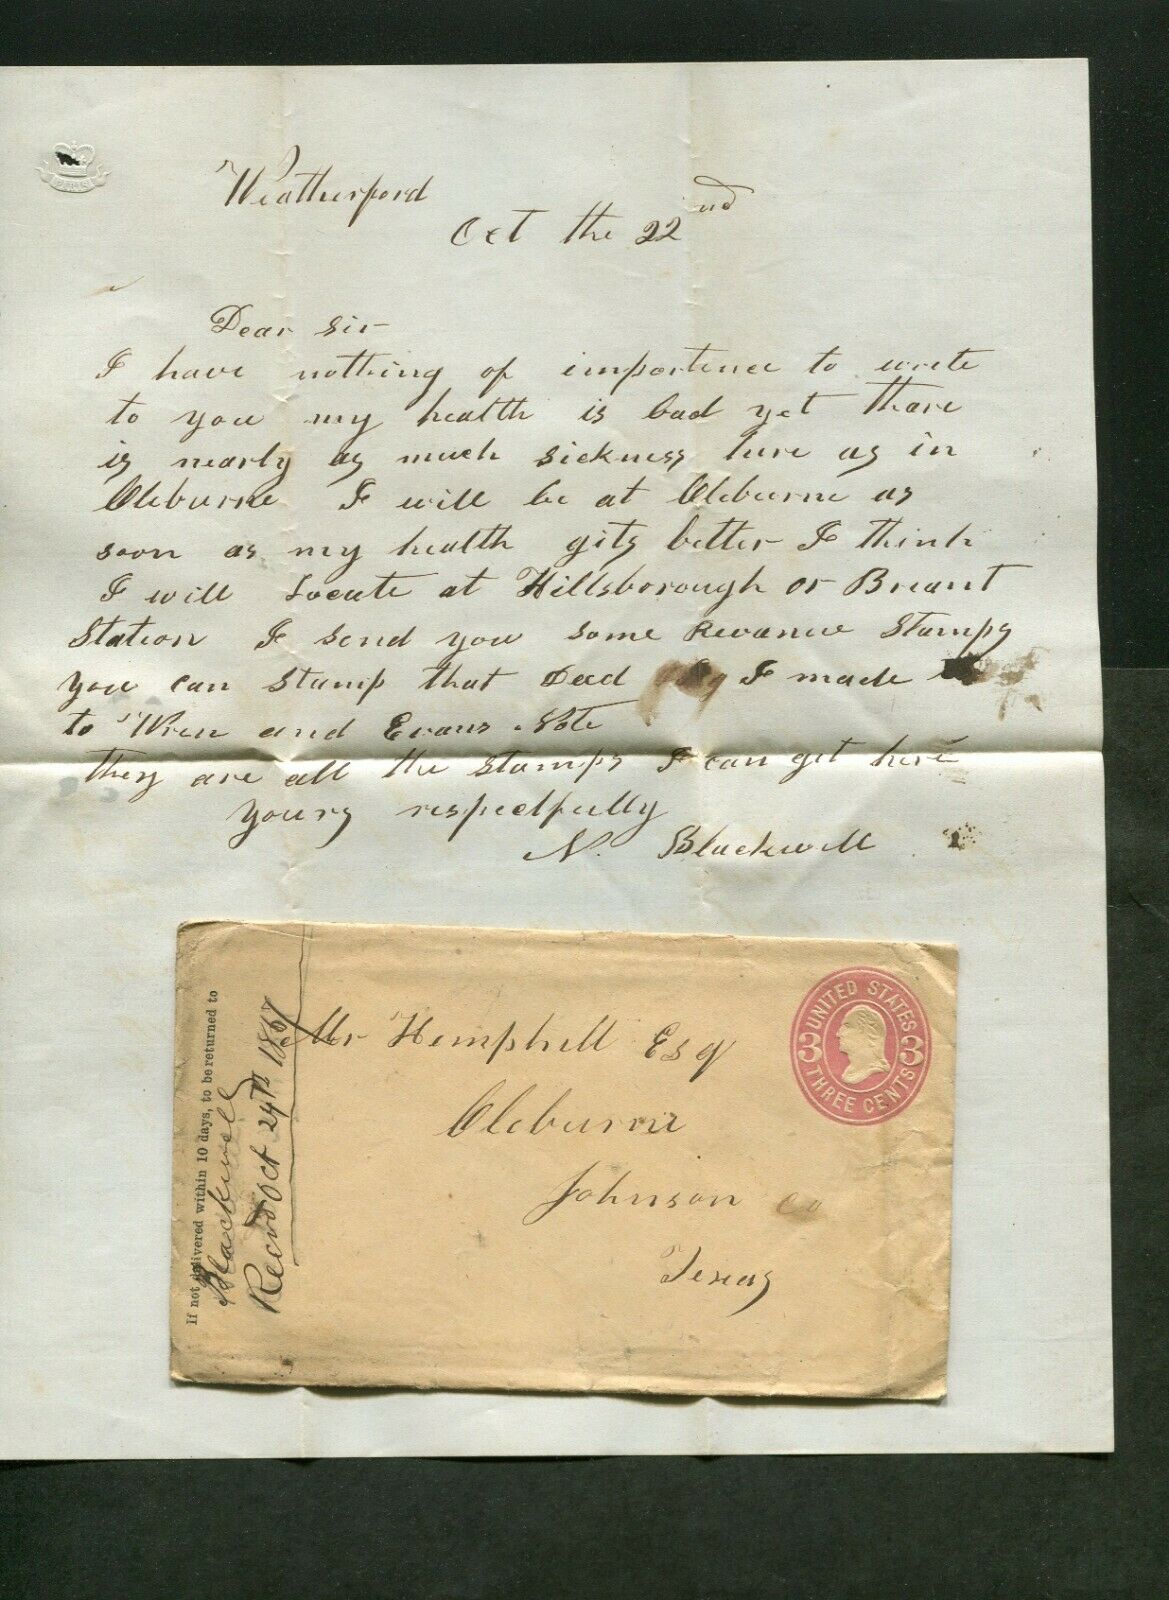 Weatherford
Oct the 22nd
Dear Sir
I have nothing of importence to write
to you my health is bad yet thare
is nearly as much sickness hure as in
Cleburne I will be at Cleburne as
soon as my health gits better I think
I will Locate at Hillsborough or Breant
Station I send you some Revanue Stamps
you can stamp that Deed I made
to Wren and Evans Note
they are all the stamps I can get here
yours respectfully
N. Blackwell
If not delivered within 10 days, to be returned to
Blackwell
Recvd Oct 24th 1867
Mr Hemphill Esq
Cleburne
Johnson Co
Texas
UNITED STATES
3 3
THREE CENTS